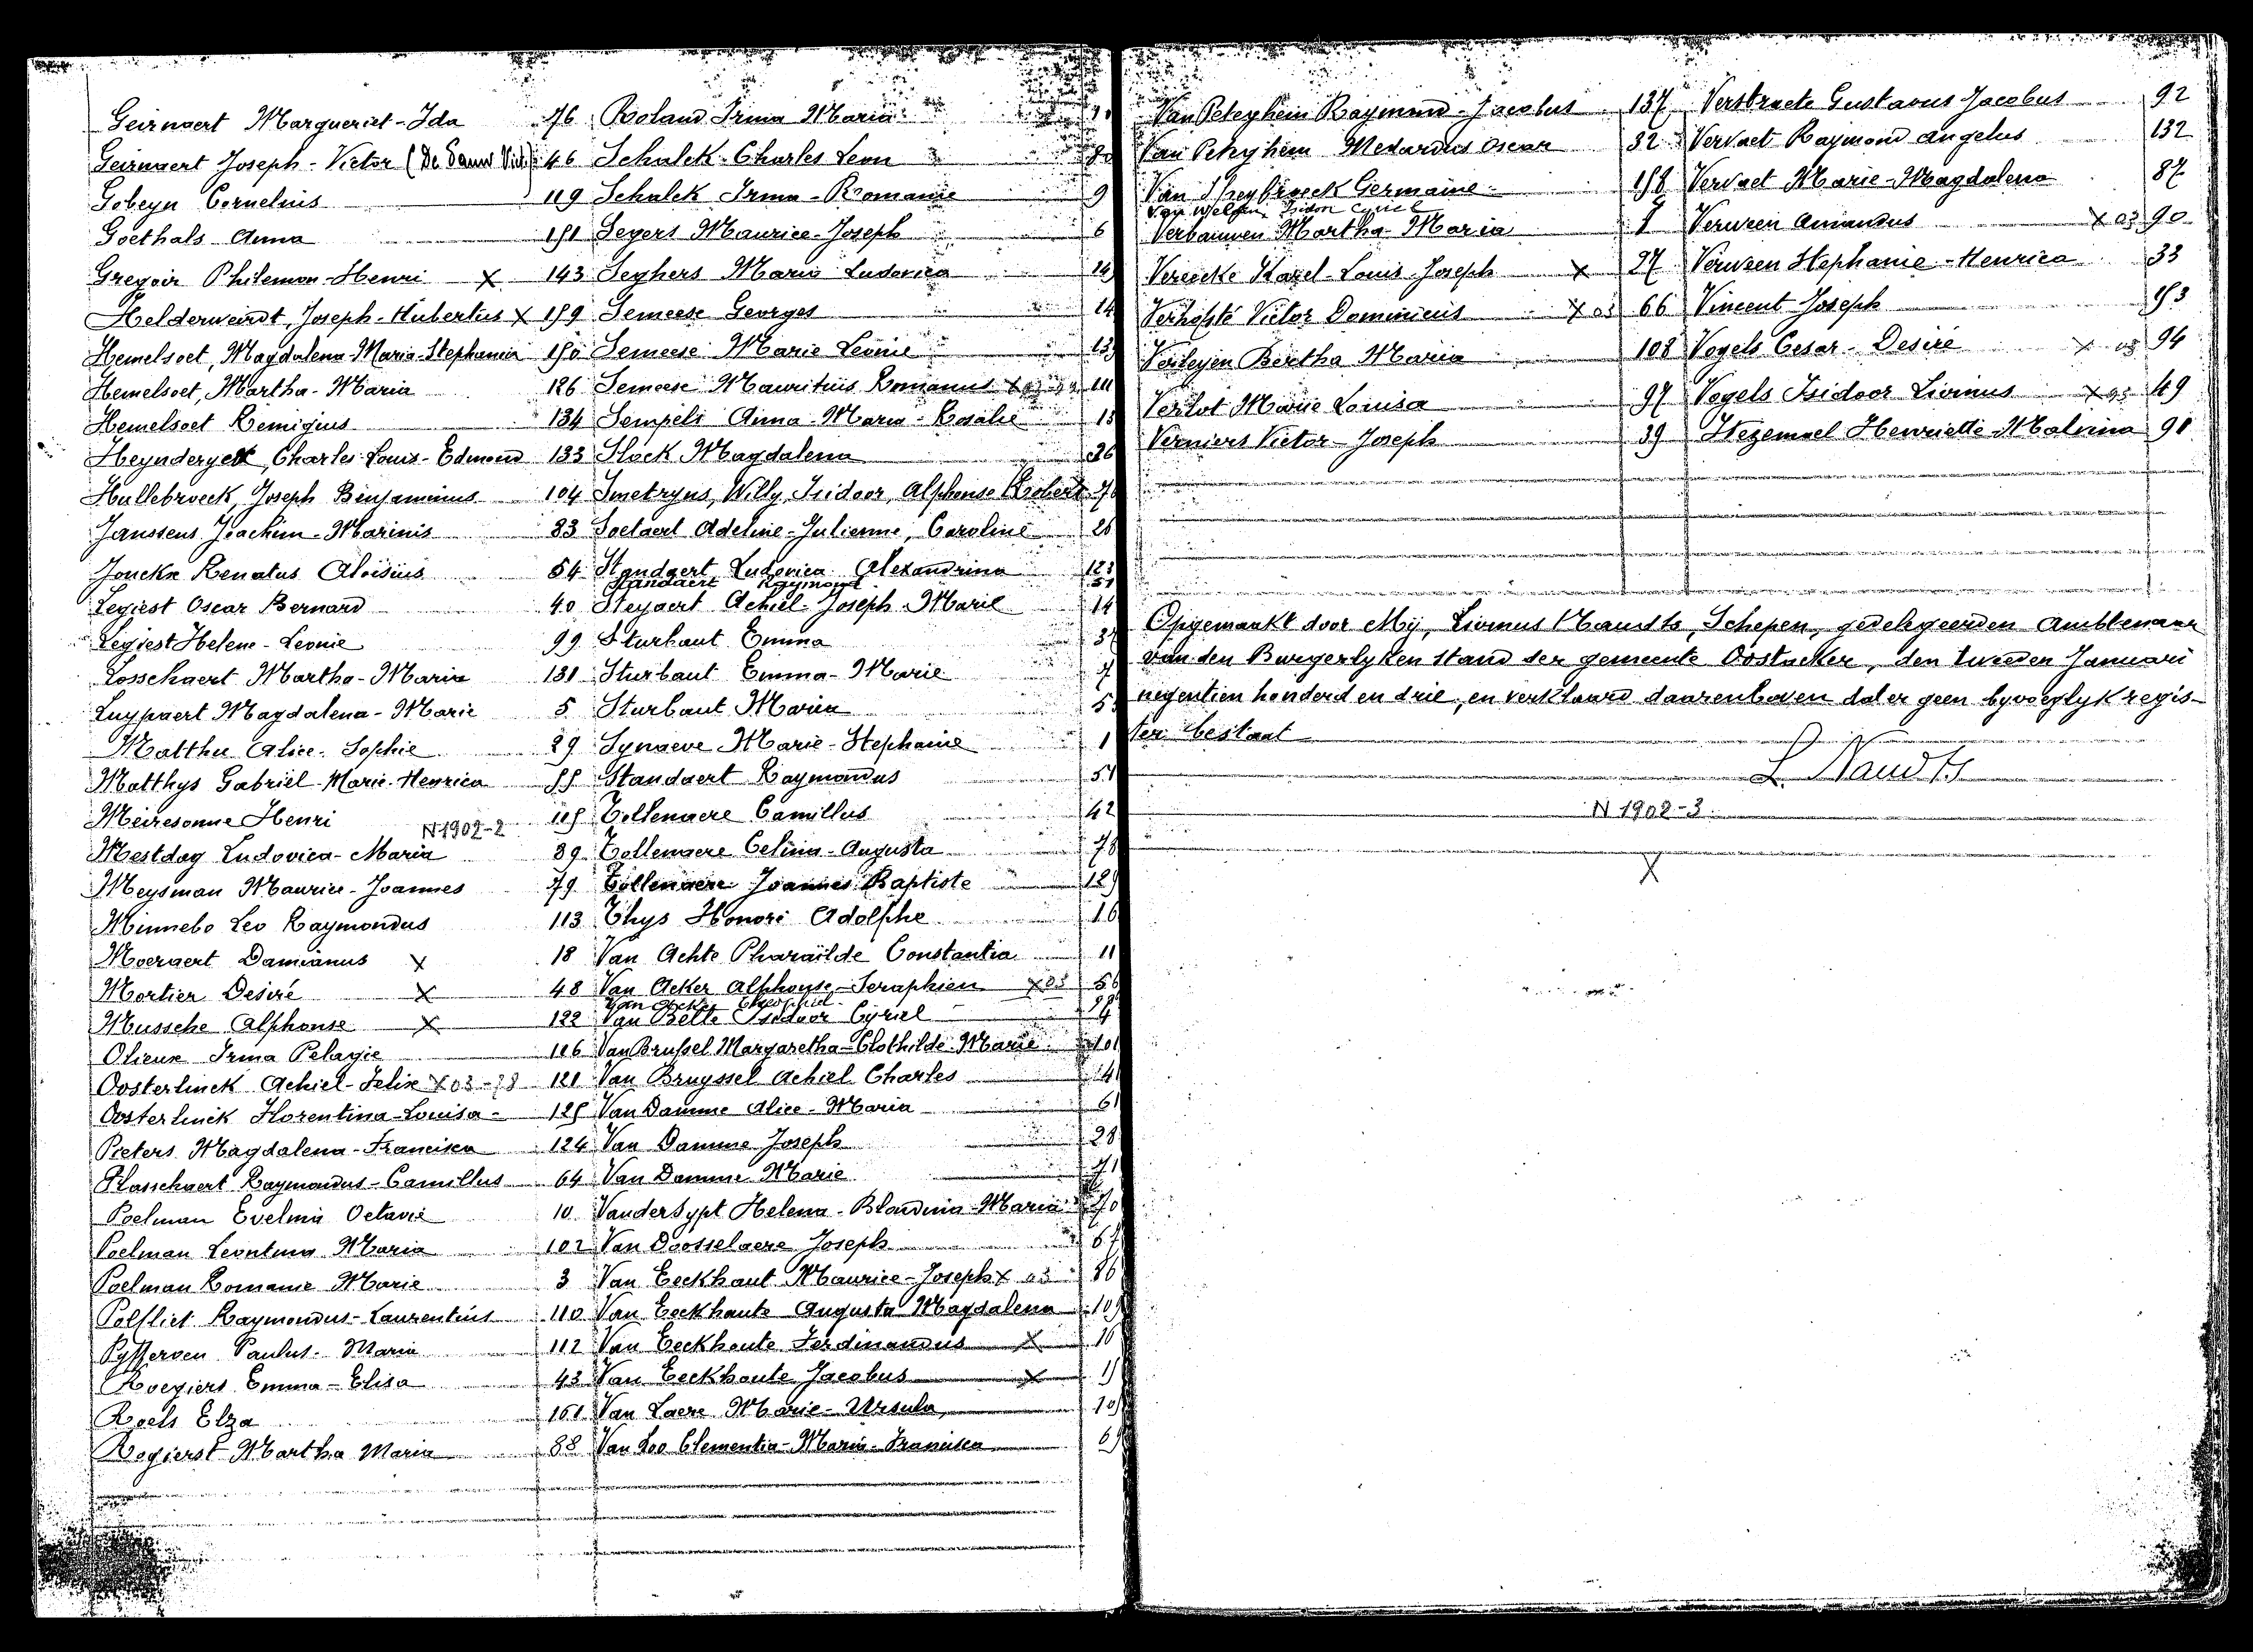 Geirnaert Marguerict-Ida 76
Geirnaert Joseph-Victor (De Sauw Vict.) 46
Gobeyn Cornelius 119
Goethals Anna 151
Gregoir Philemon-Henri X 143
Helderweirdt, Joseph-Hubertus X 159
Hemelsoet, Magdalena-Maria-Stephania 150
Hemelsoet, Martha-Maria 126
Hemelsoet Remigius 134
Heynderyckx, Charles-Louis-Edmond 133
Hullebroeck, Joseph Benjaminus 104
Janssens Joachim-Marinis 83
Jonckx Renatus Aloisius 54
Legiest Oscar Bernard 40
Legiest Helene-Leonie 99
Losschaert Martha-Maria 131
Luypaert Magdalena-Marie 5
Matthu Alice-Sophie 29
Matthys Gabriel-Marie-Henrica 55
Meiresonne Henri 115
N 1902-2
Mestdag Ludovica-Maria 89
Meysman Maurice-Joannes 79
Minnebo Leo Raymondus 113
Moeraert Damianus X 18
Mortier Desiré X 48
Mussche Alphonse X 122
Olieux Irma Pelagie 116
Oosterlinck Achiel-Felix X 03-78 121
Oosterlinck Florentina-Louisa 125
Pieters Magdalena-Francisca 124
Plasschaert Raymondus-Camillus 64
Poelman Evelina Octavie 10
Poelman Leontina Maria 102
Poelman Romanie Marie 3
Polfliet Raymondus-Laurentius 110
Pyfferoen Paulus-Maria 112
Roegiers Emma-Elisa 43
Roels Elza 161
Rogierst Martha Maria 88
Roland Irma Maria
Schalck-Charles Leon
Schalck Irma-Romanie 9
Segers Maurice-Joseph 6
Seghers Maria Ludovica 14
Semeese Georges 14
Semeese Marie Leonie 13
Semeese Mauritius Romanus
Sempels Anna-Maria-Rosalie 13
Slock Magdalena 36
Smetryns, Willy, Isidoor, Alphonse Robert 7
Soetaert Adeline-Julienne, Caroline 26
Standaert Ludovica Alexandrina 123
Standaert Raymond 51
Steyaert Achiel-Joseph-Marie 14
Sturbaut Emma 3
Sturbaut Emma-Marie 7
Sturbaut Maria 5
Synaeve Marie-Stephanie 1
Standaert Raymondus 51
Tollenaere Camillus 42
Tollenaere Celina-Augusta 78
Tollenaere Joannes Baptiste 12
Thys Honoré Adolphe 16
Van Achte Pharaïlde Constantia 11
Van Acker Alphonse-Seraphien X 03 56
Van Acker Theophiel
Van Belle Isidoor Cyriel
Van Brussel Margaretha-Clothilde-Marie 101
Van Bruyssel Achiel Charles 141
Van Damme Alice-Maria 61
Van Damme Joseph 28
Van Damme Marie 71
Vandersypt Helena-Blandina-Maria 70
Van Doosselaere Joseph 67
Van Eeckhaut Maurice-Joseph X 03 86
Van Eeckhaute Augusta Magdalena 10
Van Eeckhoute Ferdinandus X 16
Van Eeckhoute Jacobus X 15
Van Laere Marie-Ursula 10
Van Loo Clementia-Maria-Francisca 6
Van Peteghem Raymond-Jacobus 137
Van Peteghem Medardus Oscar 32
Van Speybroeck Germaine 158
Van Welfen Isidon Cyriel
Verbauwen Martha Maria 1
Vereecke Karel-Louis Joseph X 27
Verhofste Victor Dominicus X 03 66
Verleyen Bertha Maria 108
Verlot Marie Louisa 97
Verniers Victor-Joseph 39
Verstraete Gustavus Jacobus 92
Vervaet Raymond Angelus 132
Vervaet Marie-Magdalena 87
Verween Amandus X 03 90
Verween Stephanie-Henrica 33
Vincent Joseph 153
Vogels Cesar-Desiré X 03 94
Vogels Isidoor Livinus X 03 49
Hegemael Henriette-Malvina 91
Opgemaakt door Mij, Livinus Naudts, Schepen, gedelegeerden Ambtenaar
van den Burgerlyken stand der gemeente Oostacker, den tweeden Januari
negentien honderd en drie, en verklaard daarenboven dat er geen byvoeglyk regis-
ter bestaat
L. Naudts
N 1902-3
X